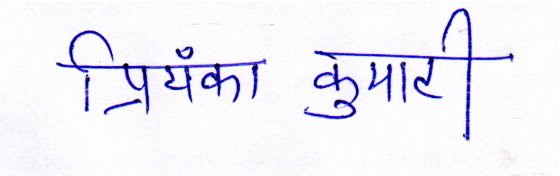 प्रियँका कुमारी